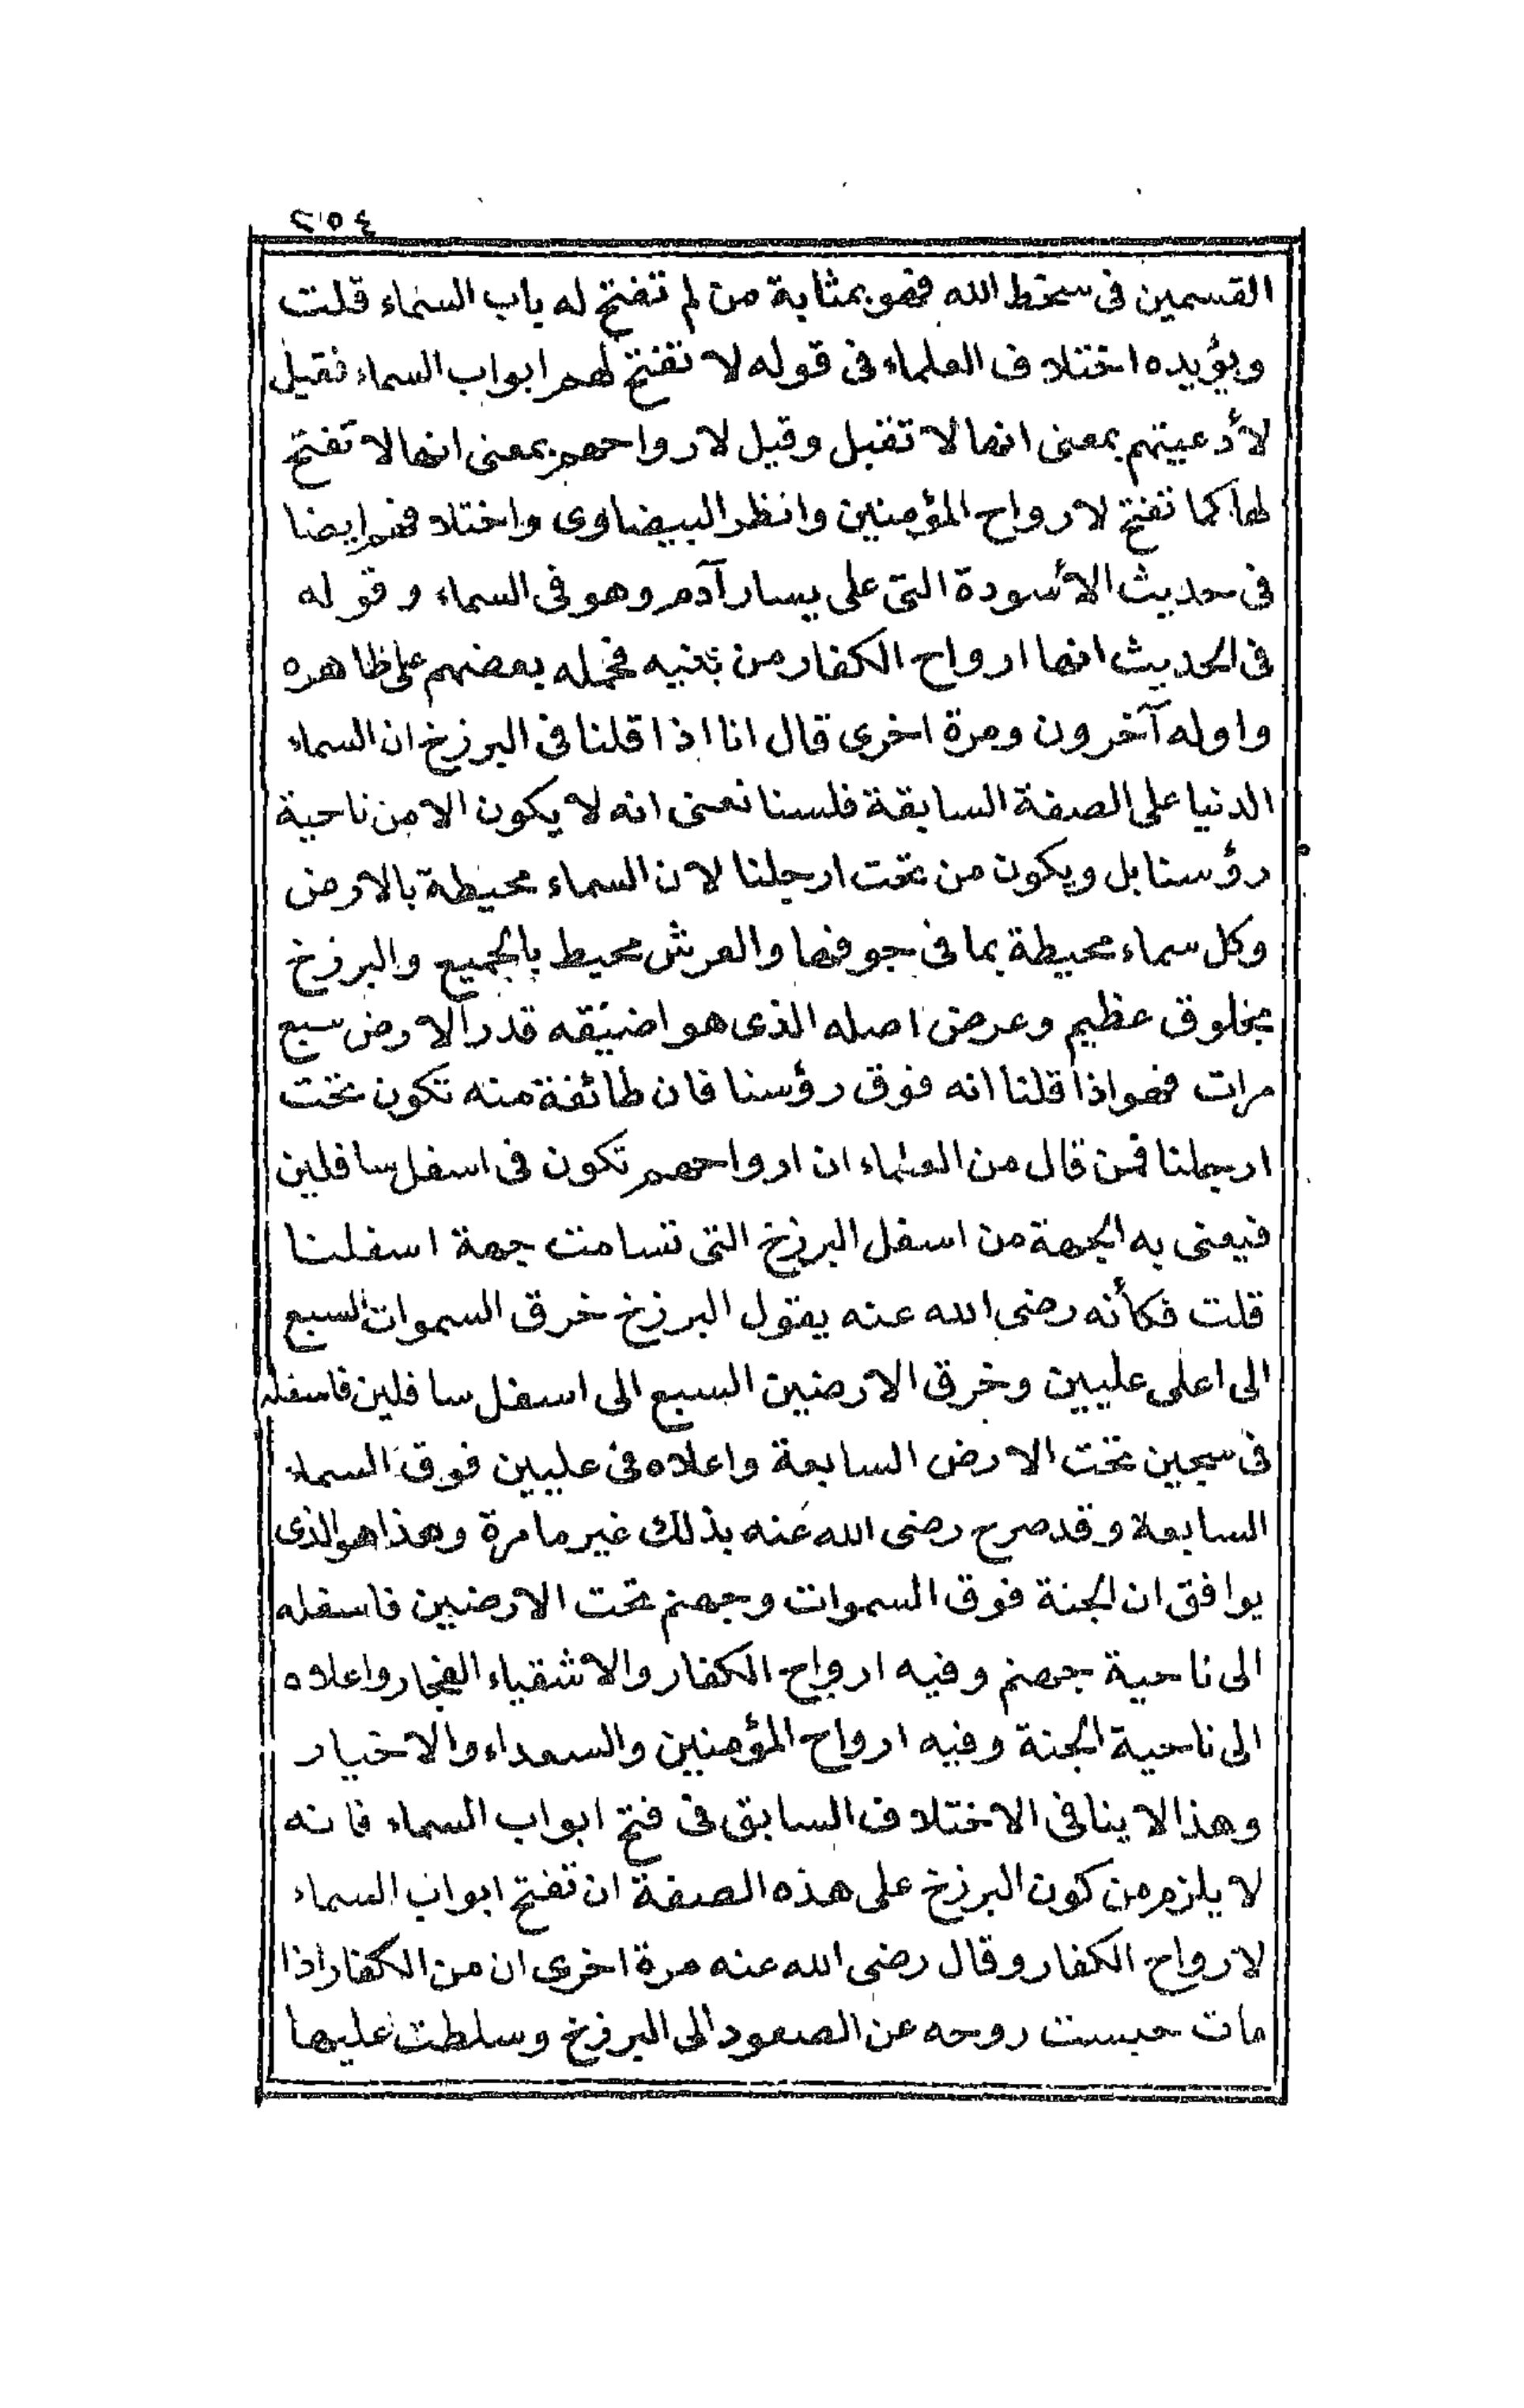 ٢٥٤
القسمين فى سخط الله فهو بمثابة من لم تفتح له باب السماء قلت
ويؤيده اختلاف العلماء فى قوله لا تفتح لهم ابواب السماء فقيل
لأدعيتهم بمعنى انها لا تقبل وقيل لارواحهم بمعنى انها لا تفتح
لها كما تفتح لارواح المؤمنين وانظر البيضاوى واختلافهم ايضا
فى حديث الأسودة التى على يسار آدم وهو فى السماء وقوله
فى الحديث انها ارواح الكفار من بنيه فحمله بعضهم على ظاهره
واوله آخرون ومرة اخرى قال انا اذا قلنا فى البرزخ ان السماء
الدنيا على الصفة السابقة فلسنا نعنى انه لا يكون الا من ناحية
رؤسنا بل ويكون من تحت ارجلنا لان السماء محيطة بالارض
وكل سماء محيطة بما فى جوفها والعرش محيط بالجميع والبرزخ
مخلوق عظيم وعرض اصله الذى هو اضيقه قدر الارض سبع
مرات فهو اذا قلنا انه فوق رؤسنا فان طائفة منه تكون تحت
ارجلنا فمن قال من العلماء ان ارواحهم تكون فى اسفل سافلين
فيعنى به الجهة من اسفل البرزخ التى تسامت جهة اسفلنا
قلت فكأنه رضى الله عنه يقول البرزخ خرق السموات السبع
الى اعلى عليين وخرق الارضين السبع الى اسفل سافلين فاسفله
فى سجين تحت الارض السابعة واعلاه فى عليين فوق السماء
السابعة وقد صرح رضى الله عنه بذلك غير ما مرة وهذا هو الذى
يوافق ان الجنة فوق السموات وجهنم تحت الارضين فاسفله
الى ناحية جهنم وفيه ارواح الكفار والاشقياء الفجار واعلاه
الى ناحية الجنة وفيه ارواح المؤمنين والسعداء والاخيار
وهذا لا ينافى الاختلاف السابق فى فتح ابواب السماء فانه
لا يلزم من كون البرزخ على هذه الصفة ان تفتح ابواب السماء
لارواح الكفار وقال رضى الله عنه مرة اخرى ان من الكفار اذا
مات حبست روحه عن الصعود الى البرزخ وسلطت عليها